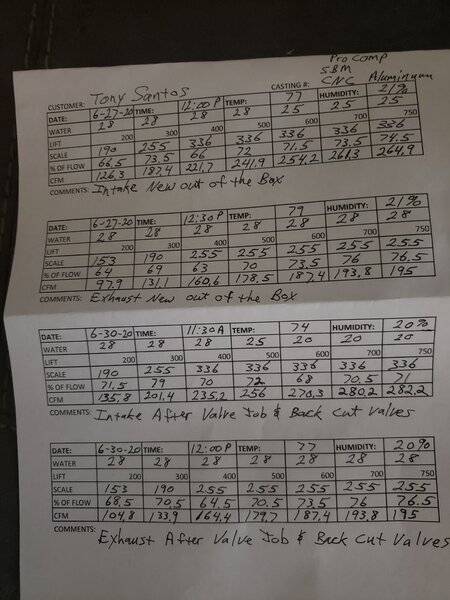 Pro Comp
SBM
CNC Aluminum
CUSTOMER: Tony Santos CASTING #:
DATE: 6-27-20 TIME: 12:00 P TEMP: 77 HUMIDITY: 21%
WATER 28 28 28 28 25 25 25
LIFT 200 300 400 500 600 700 750
SCALE 190 255 336 336 336 336 336
% OF FLOW 66.5 73.5 66 72 71.5 73.5 74.5
CFM 126.3 187.4 221.7 241.9 254.2 261.3 264.9
COMMENTS: Intake New out of the Box
DATE: 6-27-20 TIME: 12:30 P TEMP: 79 HUMIDITY: 21%
WATER 28 28 28 28 28 28 28
LIFT 200 300 400 500 600 700 750
SCALE 153 190 255 255 255 255 255
% OF FLOW 64 69 63 70 73.5 76 76.5
CFM 97.9 131.1 160.6 178.5 187.4 193.8 195
COMMENTS: Exhaust New out of the Box
DATE: 6-30-20 TIME: 11:30 A TEMP: 74 HUMIDITY: 20%
WATER 28 28 28 25 20 20 20
LIFT 200 300 400 500 600 700 750
SCALE 190 255 336 336 336 336 336
% OF FLOW 71.5 79 70 72 68 70.5 71
CFM 135.8 201.4 235.2 256 270.3 280.2 282.2
COMMENTS: Intake After Valve Job & Back Cut Valves
DATE: 6-30-20 TIME: 12:00 P TEMP: 77 HUMIDITY: 20%
WATER 28 28 28 28 28 28 28
LIFT 200 300 400 500 600 700 750
SCALE 153 190 255 255 255 255 255
% OF FLOW 68.5 70.5 64.5 70.5 73.5 76 76.5
CFM 104.8 133.9 164.4 179.7 187.4 193.8 195
COMMENTS: Exhaust After Valve Job & Back Cut Valves